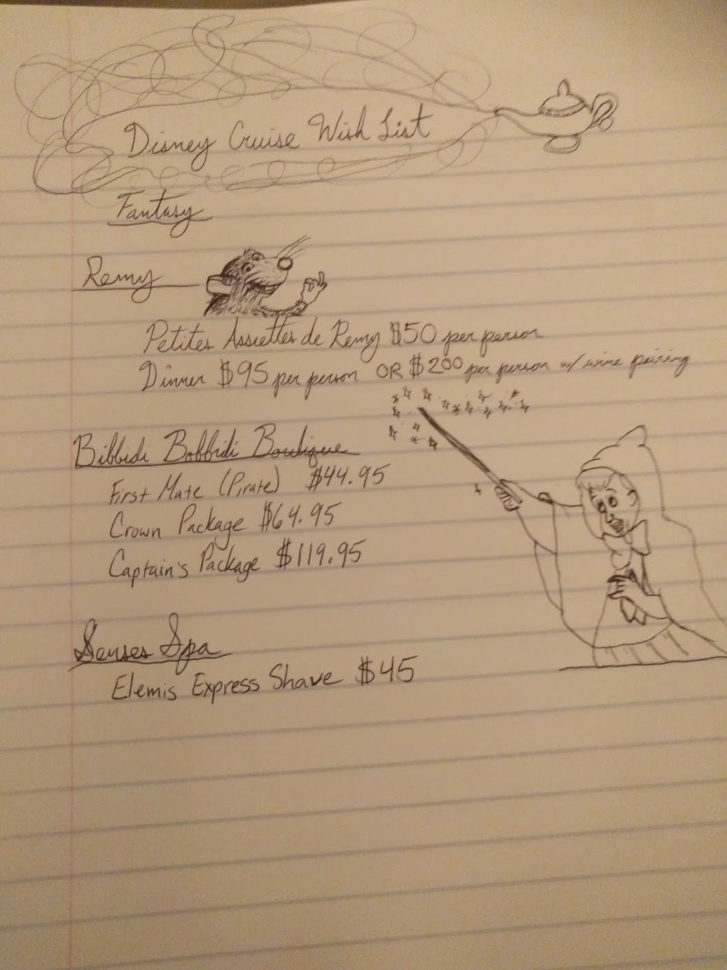 Disney Cruise Wish List
Fantasy
Remy
Petites Assiettes de Remy $50 per person
Dinner $95 per person OR $200 per person w/ wine pairing
Bibbidi Bobbidi Boutique
First Mate (Pirate) $44.95
Crown Package $64.95
Captain's Package $119.95
Senses Spa
Elemis Express Shave $45